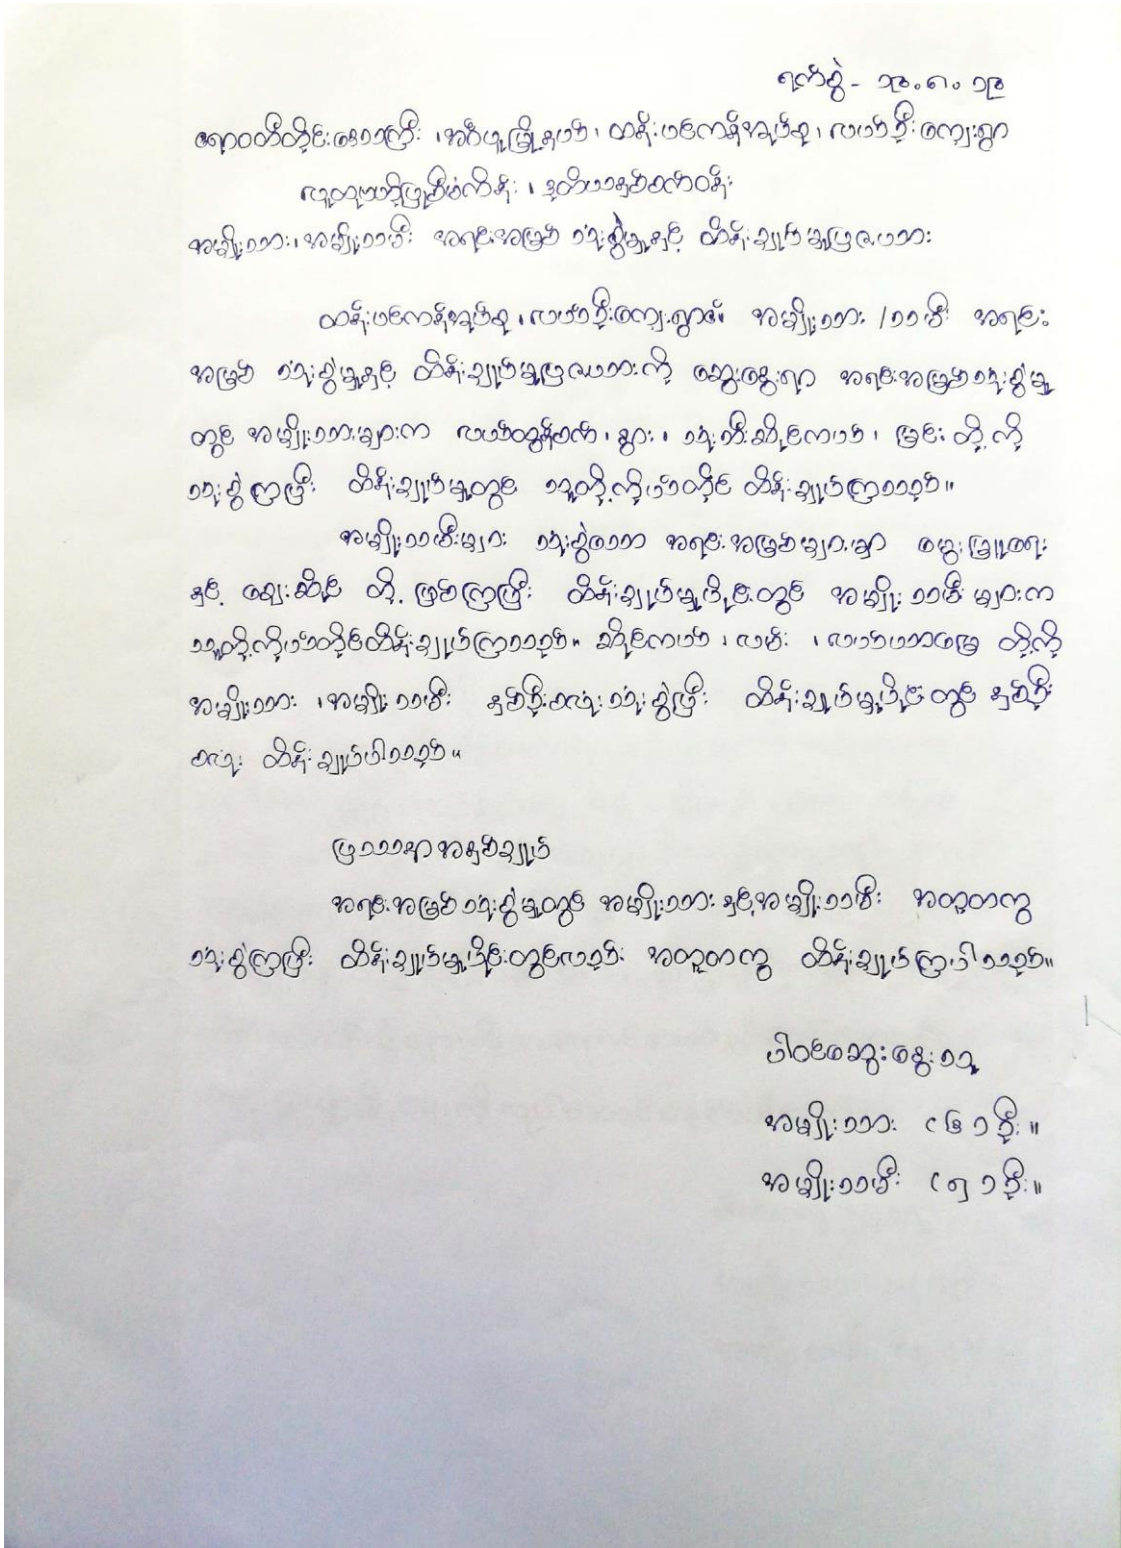 ရက်စွဲ - ၁၉.၈.၁၉
ဧရာဝတီတိုင်းဒေသကြီး ၊ အင်္ဂပူမြို့နယ် ၊ ထန်းပင်ကုန်းအုပ်စု ၊ လယ်ဦးကျေးရွာ
လူထုဗဟိုပြုစီမံကိန်း ၊ ဒုတိယနှစ်စက်ဝန်း
အမျိုးသား ၊ အမျိုးသမီး အရင်းအမြစ် သုံးစွဲမှုနှင့် ထိန်းချုပ်မှုပြဇယား
လယ်ဦးကျေးရွာ၏ အမျိုးသား / သမီး အရင်း
အမြစ် သုံးစွဲမှုနှင့် ထိန်းချုပ်မှုပြဇယားကို ဆွေးနွေးရာ အရင်းအမြစ်သုံးစွဲမှု
တွင် အမျိုးသားများက လယ်ထွန်စက် ၊ နွား ၊ သုံးဘီးဆိုင်ကယ် ၊ မြင်း တို့ကို
သုံးစွဲကြပြီး ထိန်းချုပ်မှုတွင် သူတို့ကိုယ်တိုင် ထိန်းချုပ်ကြသည်။
အမျိုးသမီးများ သုံးစွဲသော အရင်းအမြစ်များမှာ မွေးမြူရေး
နှင့် ဈေးဆိုင် တို့ ဖြစ်ကြပြီး ထိန်းချုပ်မှုပိုင်းတွင် အမျိုးသမီးများက
သူတို့ကိုယ်တိုင်ထိန်းချုပ်ကြသည်။ ဆိုင်ကယ် ၊ လမ်း ၊ လယ်ယာမြေ တို့ကို
အမျိုးသား ၊ အမျိုးသမီး နှစ်ဦးစလုံး သုံးစွဲပြီး ထိန်းချုပ်မှုပိုင်းတွင် နှစ်ဦး
စလုံး ထိန်းချုပ်ပါသည်။
ပြဿနာအနှစ်ချုပ်
အရင်းအမြစ်သုံးစွဲမှုတွင် အမျိုးသားနှင့်အမျိုးသမီး အတူတကွ
သုံးစွဲကြပြီး ထိန်းချုပ်မှုပိုင်းတွင်လည်း အတူတကွ ထိန်းချုပ်ကြပါသည်။
ပါဝင်ဆွေးနွေးသူ
အမျိုးသား (၆) ဦး။
အမျိုးသမီး (၅) ဦး။